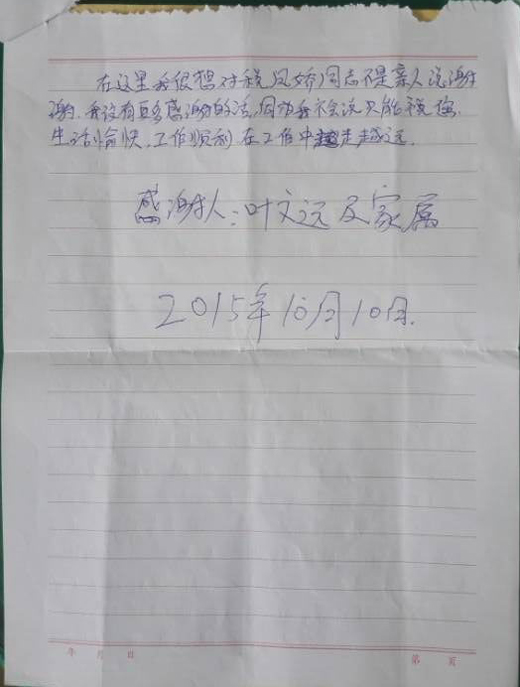 在这里我很想对税凤娇同志不是亲人说谢
谢.我没有更多感谢的话,因为我不会说只能祝您
生活愉快,工作顺利在工作中越走越远.
感谢人:叶文远及家属
2015年10月10日.
年 月 日 第 页